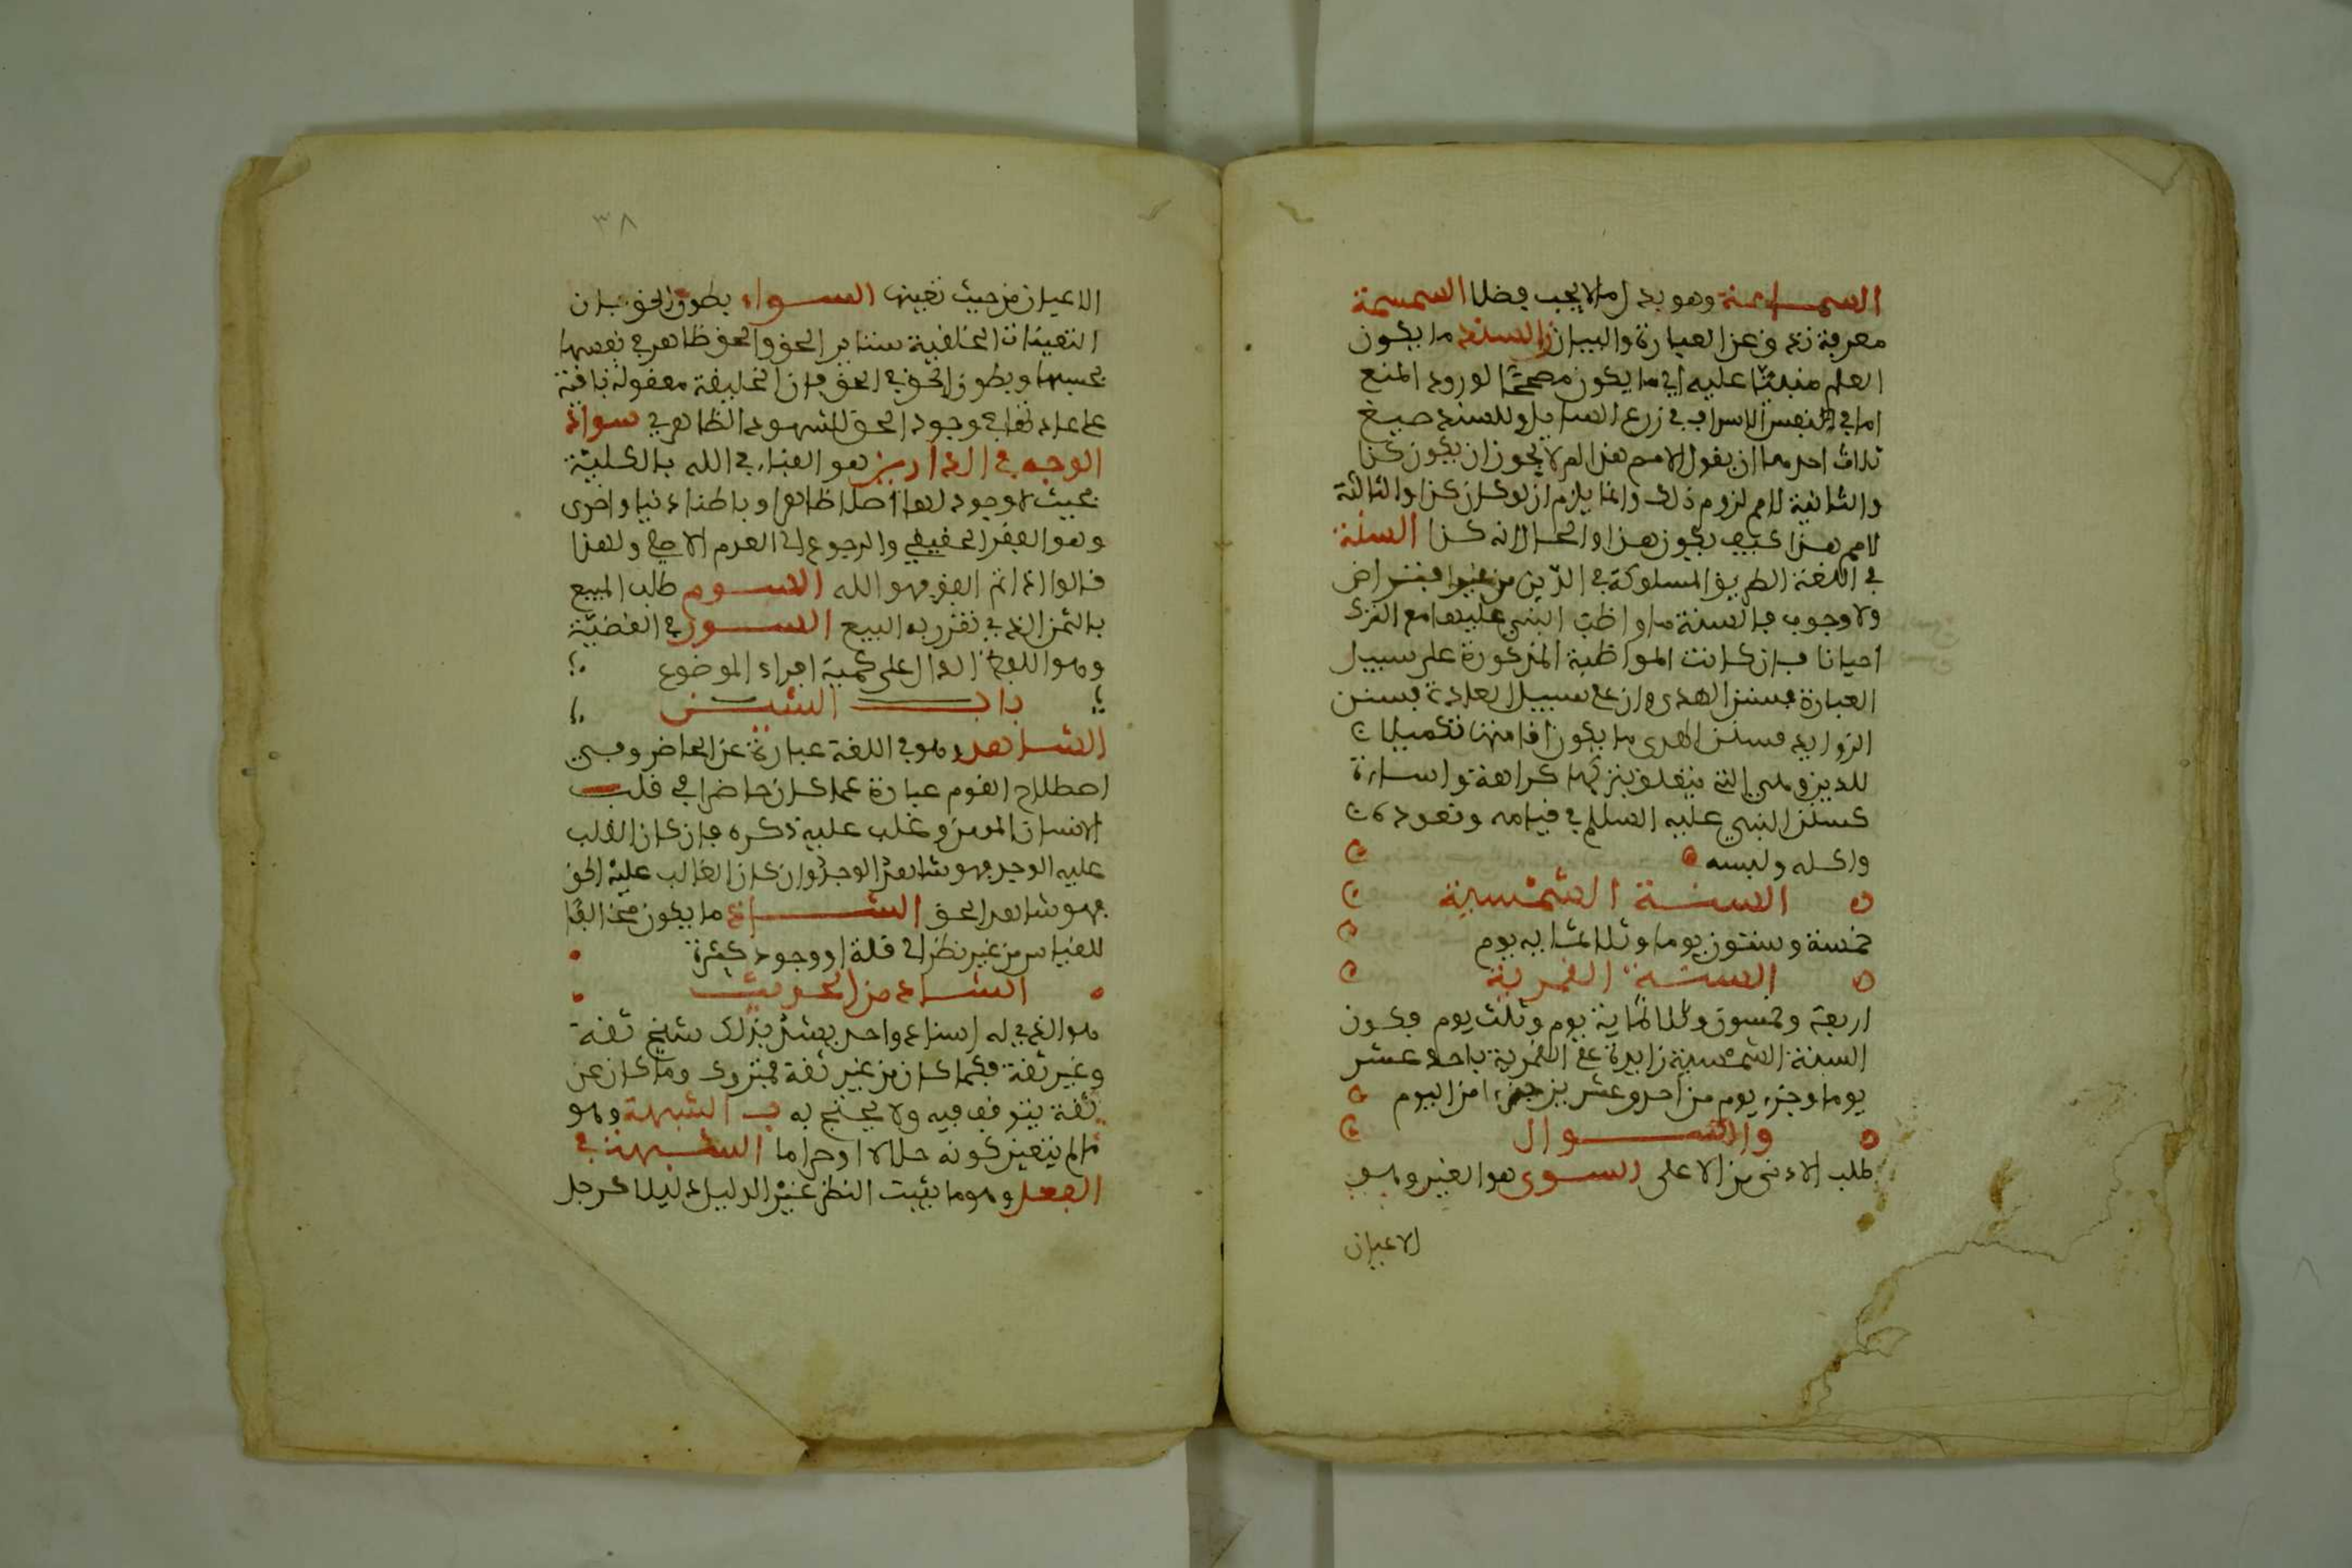 السماحة وهو بذل ما لا يجب فضلا السمسمة
معرفة تدق عن العبارة والبيان السند ما يكون
المنع مبنيا عليه اي ما يكون مصححا لورود المنع
اما في نفس الامر او في زعم السايل وللسند صيغ
ثلاث احدها ان يقول لا نسلم هذا لم لا يجوز ان يكون كذا
والثانية لا نسلم لزوم ذلك وانما يلزم ان لو كان كذا والثالثة
لا نسلم هذا كيف يكون هذا والحال انه كذا السنة
في اللغة الطريق المسلوكة في الدين من غير افتراض
ولا وجوب فالسنة ما واظب النبي عليها مع الترك
احيانا فان كانت المواظبة المذكورة على سبيل
العبادة فسنن الهدى وان على سبيل العادة فسنن
الزوايد فسنن الهدى ما يكون اقامتها تكميلا
للدين وهي التي يتعلق بتركها كراهة واساءة
كسنن النبي عليه السلام في قيامه وقعوده
واكله ولبسه
السنة الشمسية
خمسة وستون يوما وثلاثماية يوم
السنة القمرية
اربعة وخمسون وثلاثماية يوم وثلث يوم فيكون
السنة الشمسية زايدة على القمرية باحد عشر
يوما وجزء يوم من احد وعشرين جزءا من اليوم
والسوال
طلب الادنى من الاعلى السوى هو الغير وهو
الاعيان
٣٨
الاعيان من حيث تعينها السواء بطون الحق فان
التعينات الخلقية ستاير الحق والحق ظاهر في نفسها
بحسبها وبطون الحق في الحق فان الخليفة معقولة باقية
على عدمها في وجود الحق المشهود الظاهر في سواد
الوجه في الدارين هو الفناء في الله بالكلية
بحيث لا وجود لها اصلا ظاهرا وباطنا دنيا واخرى
وهو الفقر الحقيقي والرجوع الى العدم الاصلي ولهذا
قالوا اذا تم الفقر فهو الله السوم طلب المبيع
بالثمن الذي تقرر به البيع السور في القضية
وهو اللفظ الدال على كمية افراد الموضوع
باب الشين
الشاهد وهو في اللغة عبارة عن الحاضر وفي
اصطلاح القوم عبارة عما كان حاضرا في قلب
الانسان المومن وغلب عليه ذكره فان كان الغالب
عليه الوجد فهو شاهد الوجد وان كان الغالب عليه الحق
فهو شاهد الحق الشاذ ما يكون مخالفا
للقياس من غير نظر الى قلة او وجود كثرة
الشاذ من الحديث
هو الذي له اسناد واحد يشذ بذلك شيخ ثقة
وغير ثقة فما كان من غير ثقة فمتروك وما كان عن
ثقة يتوقف فيه ولا يحتج به الشبهة وهو
ما لم يتعين كونه حلالا او حراما الشبهة في
الفعل وهو ما يثبت الظن غير الدليل دليلا كرجل